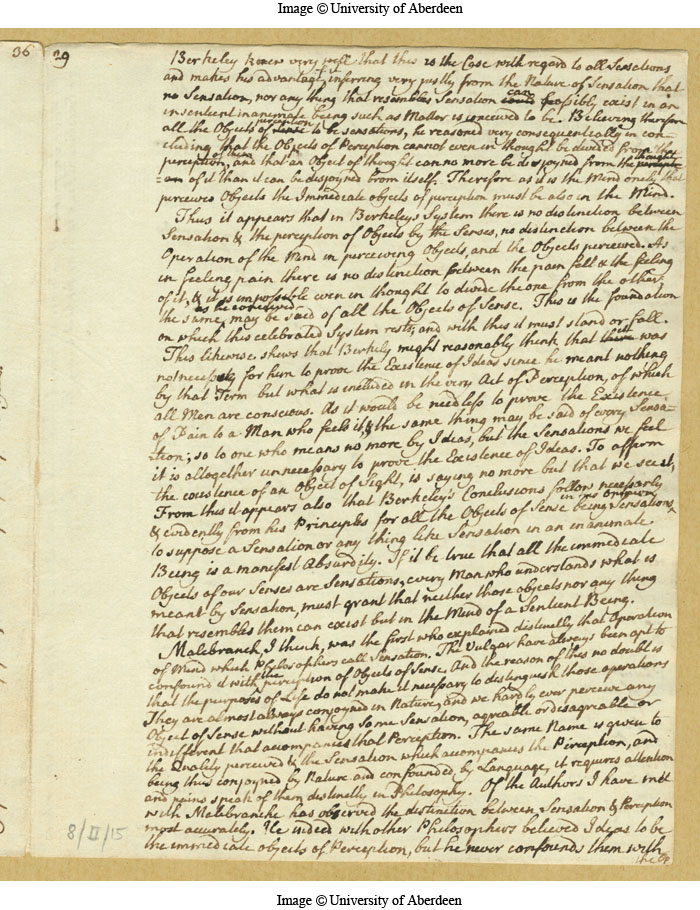 Image © University of Aberdeen
36
29
Berkeley knew very well that this is the Case with regard to all Sensations
and makes his advantage inferring very justly from the Nature of Sensation that
no Sensation, nor any thing that resembles Sensation could can possibly exist in an
insentient inanimate being such as Matter is conceived to be. Believing therefore
all the Objects of sense perception to be sensations, he reasoned very consequentially in con-
cluding that the Objects of Perception cannot even in thought be divided from the
perception of them, and that an Object of thought can no more be disjoyned from the thought
of it than it can be disjoyned from itself. Therefore as it is the Mind onely that
perceives Objects the Immediate objects of perception must be also in the Mind.
Thus it appears that in Berkeleys System there is no distinction between
Sensation & the perception of Objects by the Senses, no distinction between the
Operation of the Mind in perceiving Objects, and the Objects perceived. As
in feeling pain there is no distinction between the pain felt & the feeling
of it, & it is impossible even in thought to divide the one from the other,
the same as he conceived may be said of all the Objects of Sense. This is the foundation
on which this celebrated System rests, and with this it must stand or fall.
This likewise shews that Berkely might reasonably think that it was
not necessary for him to prove the Existence of Ideas since he meant nothing
by that Term but what is included in the very Act of Perception, of which
all Men are conscious. As it would be needless to prove the Existence
of Pain to a Man who feels it, & the same thing may be said of every Sensa=
=tion; so to one who means no more by Ideas, but the Sensations we feel
it is altogether unnecessary to prove the Existence of Ideas. To affirm
the existence of an Object of Sight, is saying no more but that we see it,
From this it appears also that Berkeley's Conclusions follow necessarily
& evidently from his Principles for all the Objects of Sense being in his Opinion Sensations,
to suppose a Sensation or any thing like Sensation in an inanimate
Being is a manifest Absurdity. If it be true that all the immediate
Objects of our Senses are Sensations, every Man who understands what is
meant by Sensation, must grant that neither those objects nor any thing
that resembles them can exist but in the Mind of a Sentient Being.
Malebranch, I think, was the first who explained distinctly that Operation
of Mind which Philosophers call Sensation. The Vulgar have always been apt to
confound it with the perception of Objects of Sense. And the reason of this no doubt is
that the purposes of Life do not make it necessary to distinguish those operations
They are almost always conjoyned in Nature, and we hardly ever perceive any
Object of Sense without having some Sensation, agreable or disagreable or
indifferent that accompanies that Perception. The same Name is given to
the Quality perceived & the Sensation which accompanies the Perception, and
being thus conjoyned by Nature and confounded by Language, it requires attention
and pains speak of them distinctly in Philosophy. Of the Authors I have met
with Malebranche has observed the distinction between Sensation & Perception
most accurately. He indeed with other Philosophers believed Ideas to be
the immediate objects of Perception, but he never confounds them with
the
8/II/15
Image © University of Aberdeen